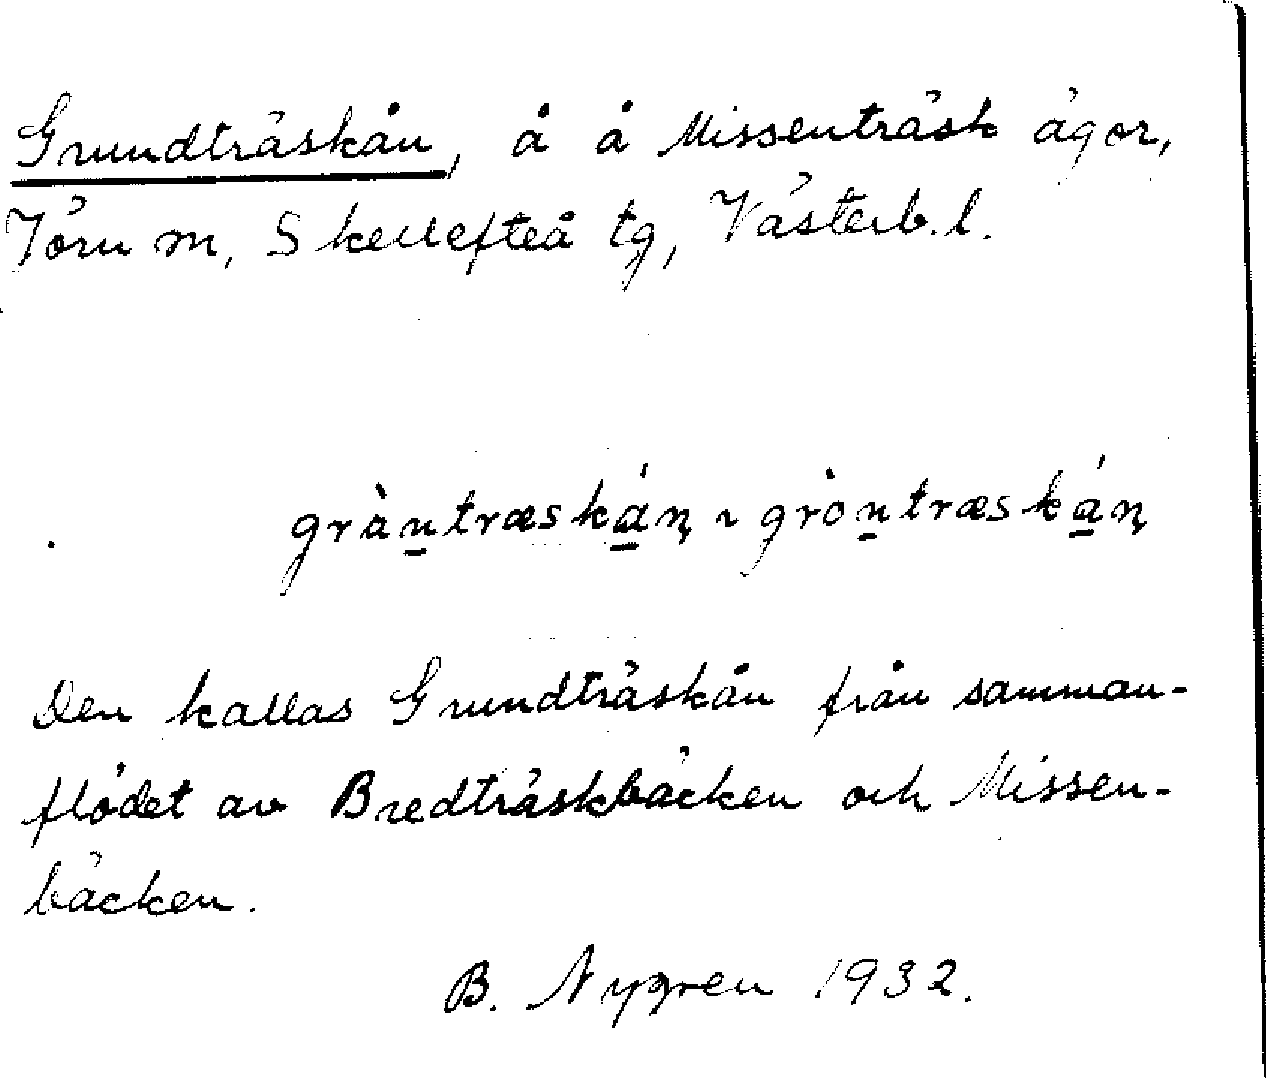 Grundträskån, å å Missenträsk ägor,
Jörn sn, Skellefteå tg, Västerb. l.
gràn̠træská̠ņ ~ gròn̠træská̠ņ
Den kallas Grundträskån från samman-
flödet av Bredträskbäcken och Missen-
bäcken.
B. Nygren 1932.